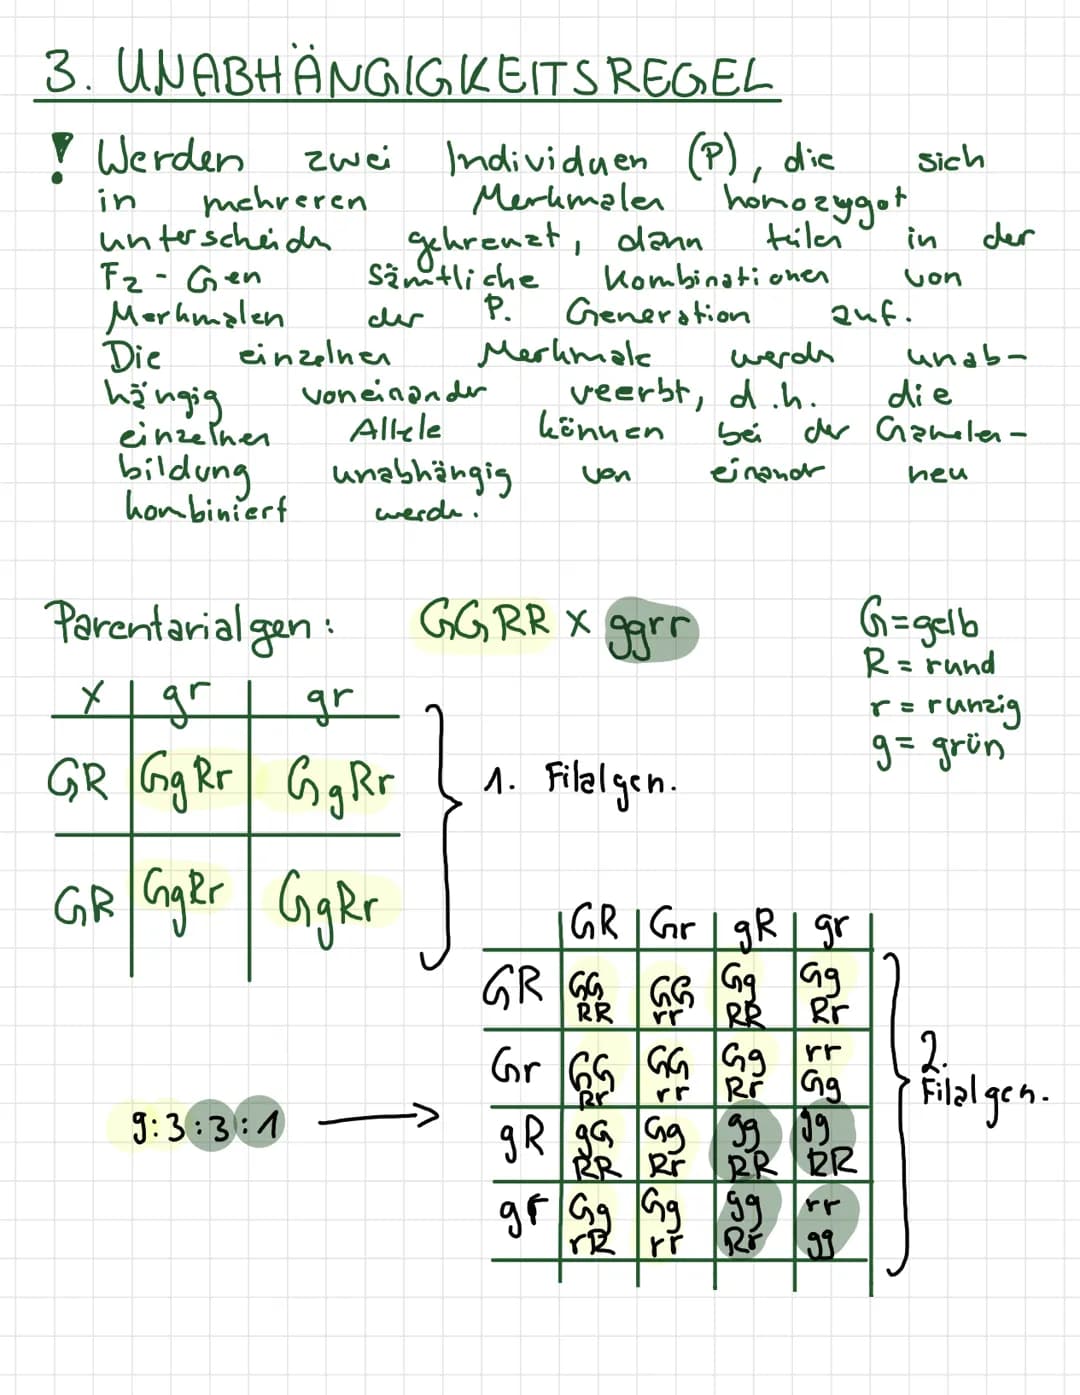 3. UNABHÄNGIGKEITSREGEL
! Werden zwei Individuen (P), die sich
in mehreren Merkmalen homozygot
unterscheidn gekreuzt, dann teilen in der
F2 - Gen Sämtliche Kombinationen von
Merkmalen der P. Generation auf.
Die einzelnen Merkmale werdn unab-
hängig voneinander veerbt, d.h. die
einzelnen Allele können bei der Gameten-
bildung unabhängig von einandr neu
kombiniert werdn.
Parentarialgen: GGRR x ggrr
G=gelb
R = rund
r = runzig
g = grün
x gr gr
GR GgRr GgRr
GR GgRr GgRr
1. Filalgen.
GR Gr gR gr
GR GG GG Gg Gg
RR rr RR Rr
Gr GG GG Gg rr
Rr rr Rr Gg
gR gG Gg gg gg
RR Rr RR RR
gr Gg Gg gg rr
rR rr Rr gg
2.
Filalgen.
9:3:3:1 →